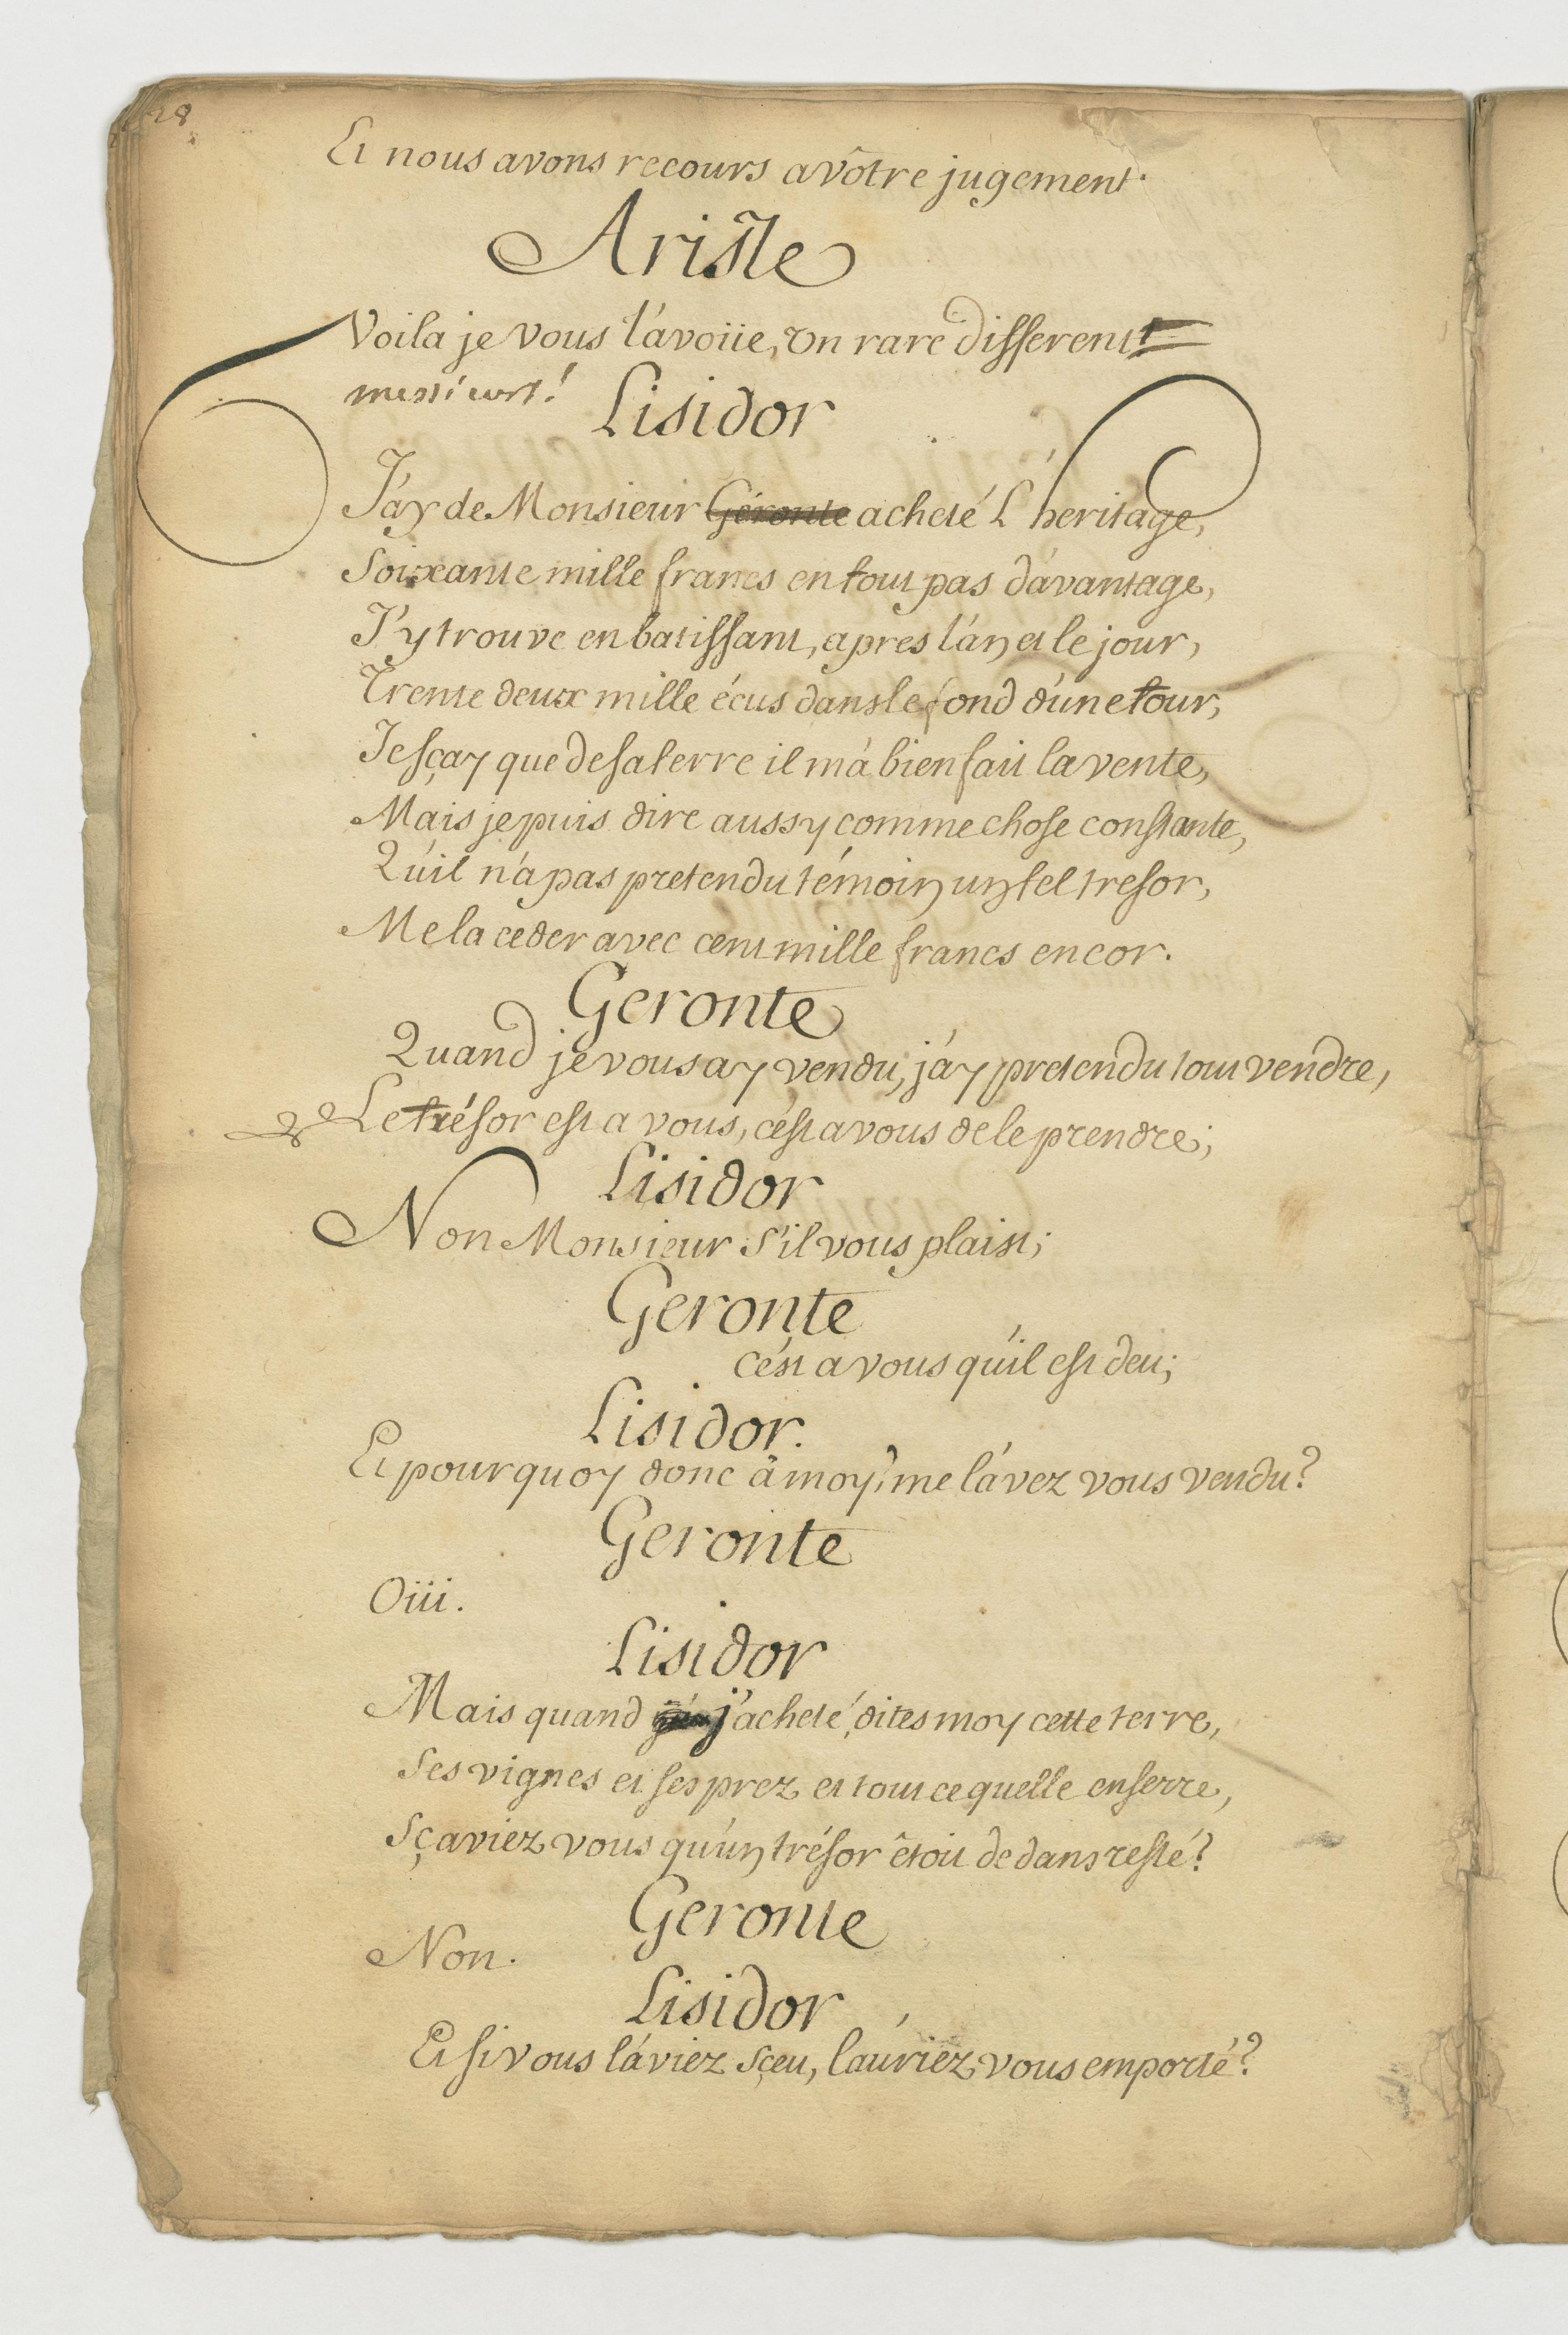 28
Et nous avons recours a vôtre jugement.
Ariste
Voila je vous l'avoüe, un rare different
messieurs!
Lisidor
J'ay de Monsieur Géronte acheté L'heritage,
Soixante mille francs en tout pas d'avantage,
J'y trouve en batissant, apres l'an et le jour,
Trente deux mille écus dans le fond d'une tour,
Je sçay que de sa terre il m'a bien fait la vente,
Mais je puis dire aussy comme chose constante,
Qu'il n'a pas pretendu témoin un tel tresor,
Me la ceder avec cent mille francs encor.
Geronte
Quand je vous ay vendu, j'ay pretendu tout vendre,
Le trésor est a vous, c'est a vous de le prendre;
Lisidor
Non Monsieur s'il vous plaist;
Geronte
C'est a vous qu'il est deu;
Lisidor.
Et pourquoy donc â moy? me l'avez vous vendu?
Geronte
Oüi.
Lisidor
Mais quand j'acheté, dites moy cette terre,
Ses vignes et ses prez et tout ce quelle enserre,
Sçaviez vous qu'un trésor êtoit dedans resté?
Geronte
Non.
Lisidor
Et si vous l'aviez sçeu, l'auriez vous emporté?